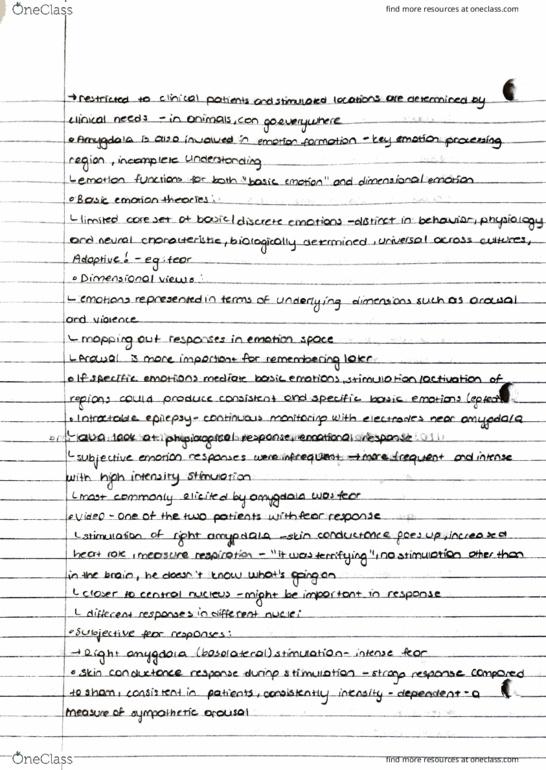 OneClass
find more resources at oneclass.com
→ restricted to clinical patients and stimulated locations are determined by
clinical needs - in animals, can go everywhere
• Amygdala is also involved in emotion formation - key emotion processing
region, incomplete understanding
↳ emotion functions for both "basic emotion" and dimensional emotion
• Basic emotion theories:
↳ limited core set of basic/discrete emotions - distinct in behavior, physiology
and neural characteristic, biologically determined, universal across cultures,
Adaptive! - eg: fear
• Dimensional views:
↳ emotions represented in terms of underlying dimensions such as arousal
and violence
↳ mapping out responses in emotion space
↳ Arousal is more important for remembering later
• If specific emotions mediate basic emotions, stimulation/activation of
regions could produce consistent and specific basic emotions
• Intractable epilepsy - continuous monitoring with electrodes near amygdala
look at physiological response, emotional response
↳ subjective emotion responses were infrequent → more frequent and intense
with high intensity stimulation
↳ most commonly elicited by amygdala was fear
• Video - one of the two patients with fear response
↳ stimulation of right amygdala - skin conductance goes up, increased
heart rate, measure respiration - "it was terrifying", no stimulation other than
in the brain, he doesn't know what's going on
↳ closer to central nucleus - might be important in response
↳ different responses in different nuclei
• Subjective fear responses:
→ Right amygdala (basolateral) stimulation - intense fear
• Skin conductance response during stimulation - strong response compared
to sham, consistent in patients, consistently intensity - dependent - a
measure of sympathetic arousal
OneClass
find more resources at oneclass.com